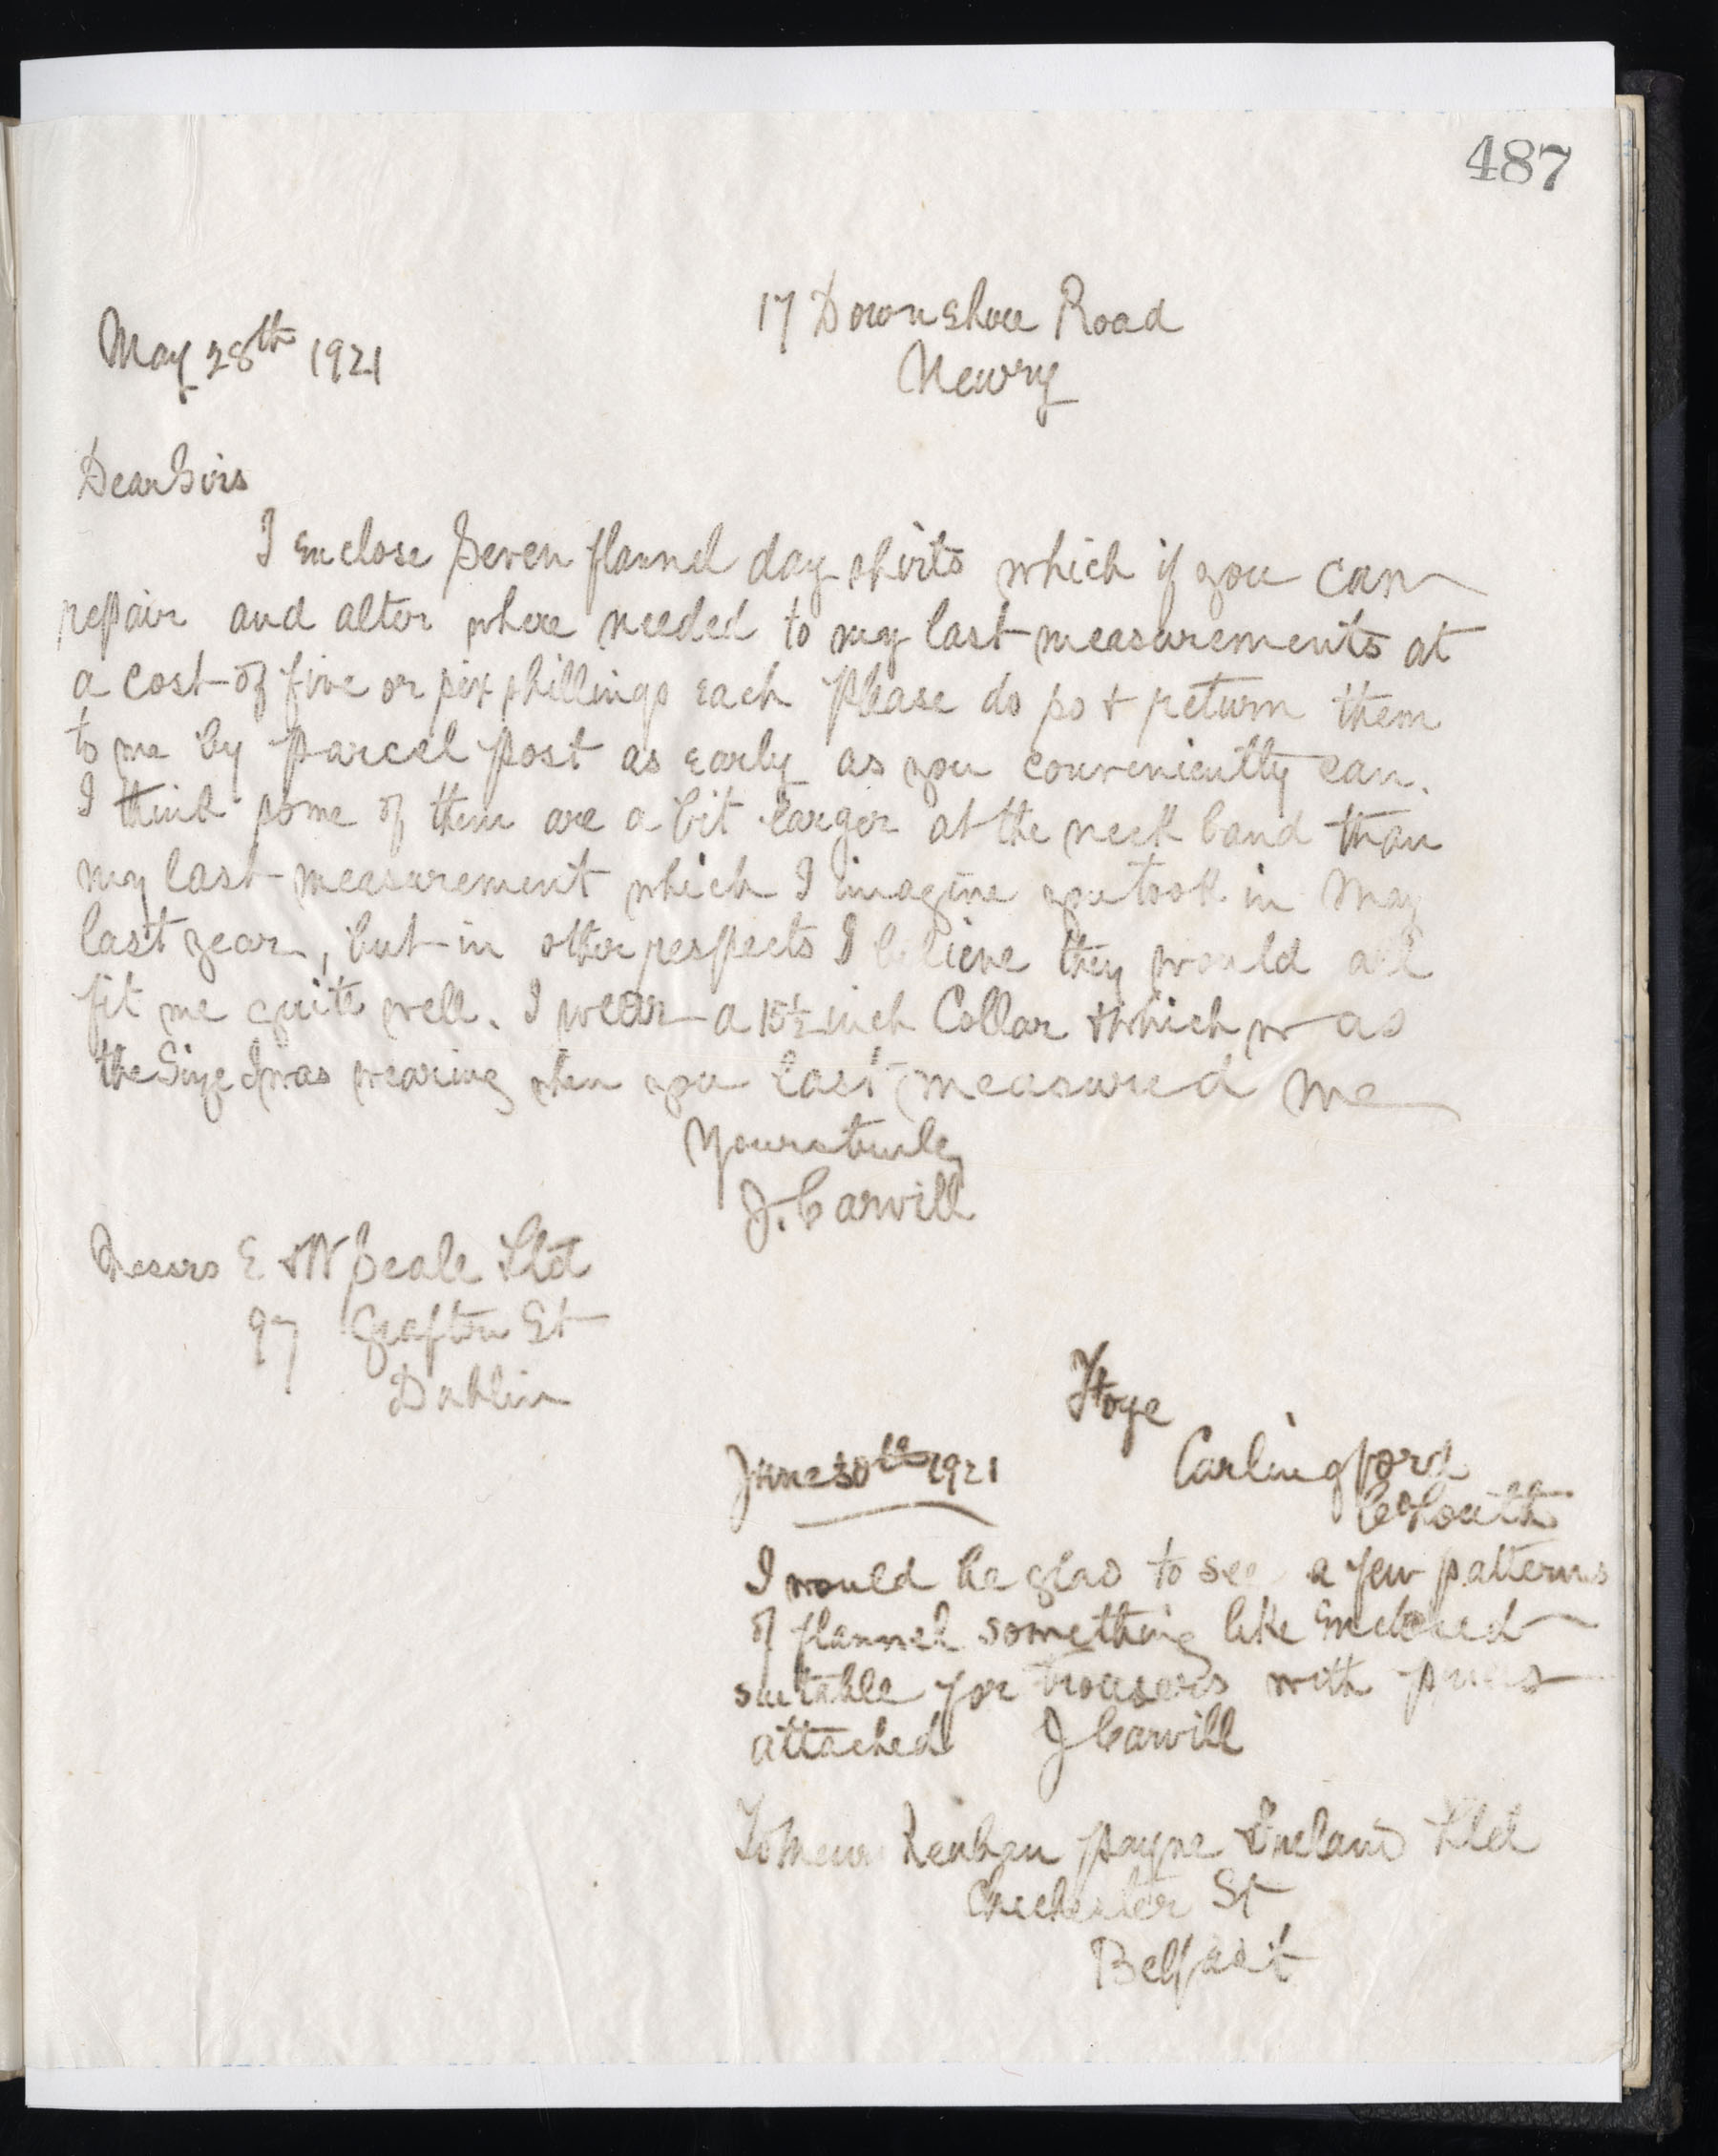 487
17 Downshire Road
May 28th 1921
Newry
Dear Sirs
I enclose seven flannel day shirts which if you can
repair and alter where needed to my last measurements at
a cost of five or six shillings each Please do so & return them
to me by parcel post as early as you conveniently can.
I think some of them are a bit larger at the neck band than
my last measurement which I imagine you took in May
last year, but in other respects I believe they would all
fit me quite well. I wear a 15½ inch Collar & which was
the Size I was wearing when you last measured me
Yours truly
J. Carvill
Messrs E & W Seale Ltd
97 Grafton St
Dublin
June 30th 1921
Carlingford
Co Louth
I would be glad to see a few patterns
of flannel something like enclosed
suitable for trousers with prices
attached J Carvill
To Messrs Payne & Ireland Ltd
Chichester St
Belfast